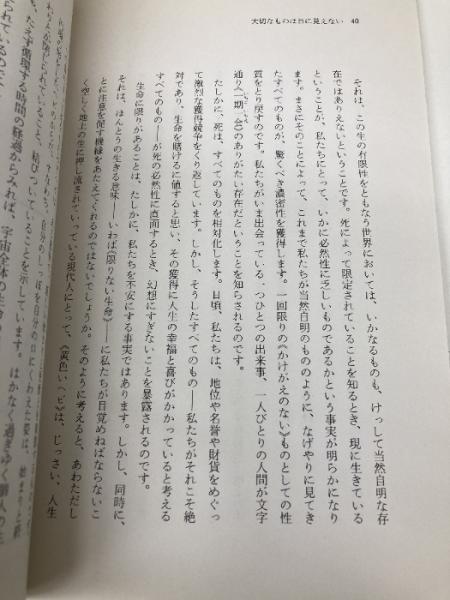 大切なものは目に見えない 40
それは、この生の有限性をともなう世界においては、いかなるものも、けっして当然自明な存
在ではありえないということです。死によって限定されていることを知るとき、現に生きている
ということが、私たちにとって、いかに必然性に乏しいものであるかという事実が明らかになり
ます。まさにそのことによって、これまで私たちが当然自明のもののように、なげやりに見てき
たすべてのものが、驚くべき濃密性を獲得します。一回限りの《かけがえのない》ものとしての性
質をとり戻すのです。私たちがいま出会っている一つひとつの出来事、一人びとりの人間が文字
通り《一期一会》のありがたい存在だということを知らされるのです。
たしかに、死は、すべてのものを相対化します。日頃、私たちは、地位や名誉や財貨をめぐっ
て激烈な獲得競争をくり返しています。しかし、そうしたすべてのもの——私たちがそれこそ絶
対であり、生命を賭けるに値すると思い、その獲得に人生の幸福と喜びがかかっていると考える
すべてのもの——が死の必然性に直面するとき、幻想にすぎないことを暴露されるのです。
生命に限りがあることは、たしかに、私たちを不安にする事実ではあります。しかし、同時に、
それは、ほんとうの生きる意味——いわば《限りない生命》——に私たちが目覚めねばならないこ
とに注意を促す機縁をあたえてくれるのではないでしょうか。そのように考えると、あわただし
く空しく地上の生に押し流されていっている現代人にとって、《黄色いヘビ》は、じっさい、人生
られていること、結びついていることを示しています。はかなく過ぎゆく個人の生
も、たえず循環する時間の経過からみれば、宇宙全体の生命の
られているので